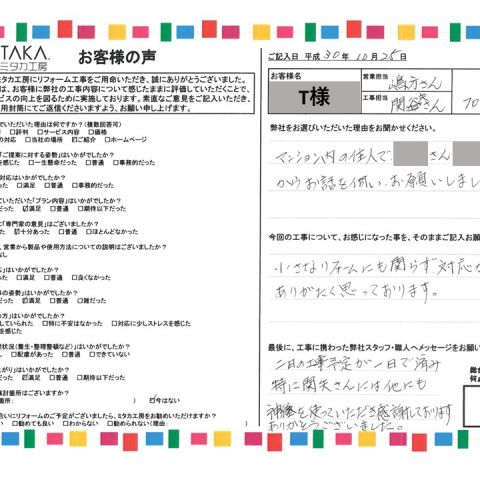 ITAKA.
ミタカ工房
お客様の声
ミタカ工房にリフォーム工事をご用命いただき、誠にありがとうございました。
は、お客様に弊社の工事内容について感じたままに評価していただくことで、
ビスの向上を図るために実施しております。素直なご意見をご記入いただき、
用封筒にてご返信くださいますよう、お願い申し上げます。
ていただいた理由は何ですか?(複数回答可)
□評判 □サービス内容 □価格
の対応 □当社の場所 ☑ご紹介 □ホームページ
「ご提案に対する姿勢」はいかがでしたか?
を感じた □一生懸命だった □普通 □事務的だった
対応はいかがでしたか?
った □満足 □普通 □事務的だった
ていただいた「プラン内容」はいかがでしたか?
だった ☑満足 □普通 □期待以下だった
に「専門家の意見」はございましたか?
った ☑十分あった □普通 □ほとんどなかった
、営業から製品や使用方法についての説明はございましたか?
なし
応」はいかがでしたか?
った □満足 □普通 □良くなかった
事の姿勢」はいかがでしたか?
った ☑満足 □普通 □雑だった
め方」はいかがでしたか?
していられた □特に不安はなかった □対応に少しストレスを感じた
を感じた
状況(養生・整理整頓など)はいかがでしたか?
し □配慮があった □できていない
がり」はいかがでしたか?
だった □満足 □普通 □期待以下だった
検討箇所はございますか?
箇所: ) ☑今はない
合いにリフォームのご予定がございましたら、ミタカ工房をお勧めいただけますか?
い □勧めても良い □わからない □勧められない(理由: )
ご記入日 平成 30年 10月 25日
お客様名
T様
営業担当
嶋方さん
工事担当
関矢さん
弊社をお選びいただいた理由をお聞かせください。
マンション内の住人で、 さん
からお話を伺い、お願いしまし
今回の工事について、お感じになった事を、そのままご記入お願
小さなリフォームにも関らず対応が
ありがたく思っております。
最後に、工事に携わった弊社スタッフ・職人へメッセージをお願い
二日の工事予定が一日で済み
特に関矢さんには他にも
を使っていただき感謝しております
ありがとうございました。